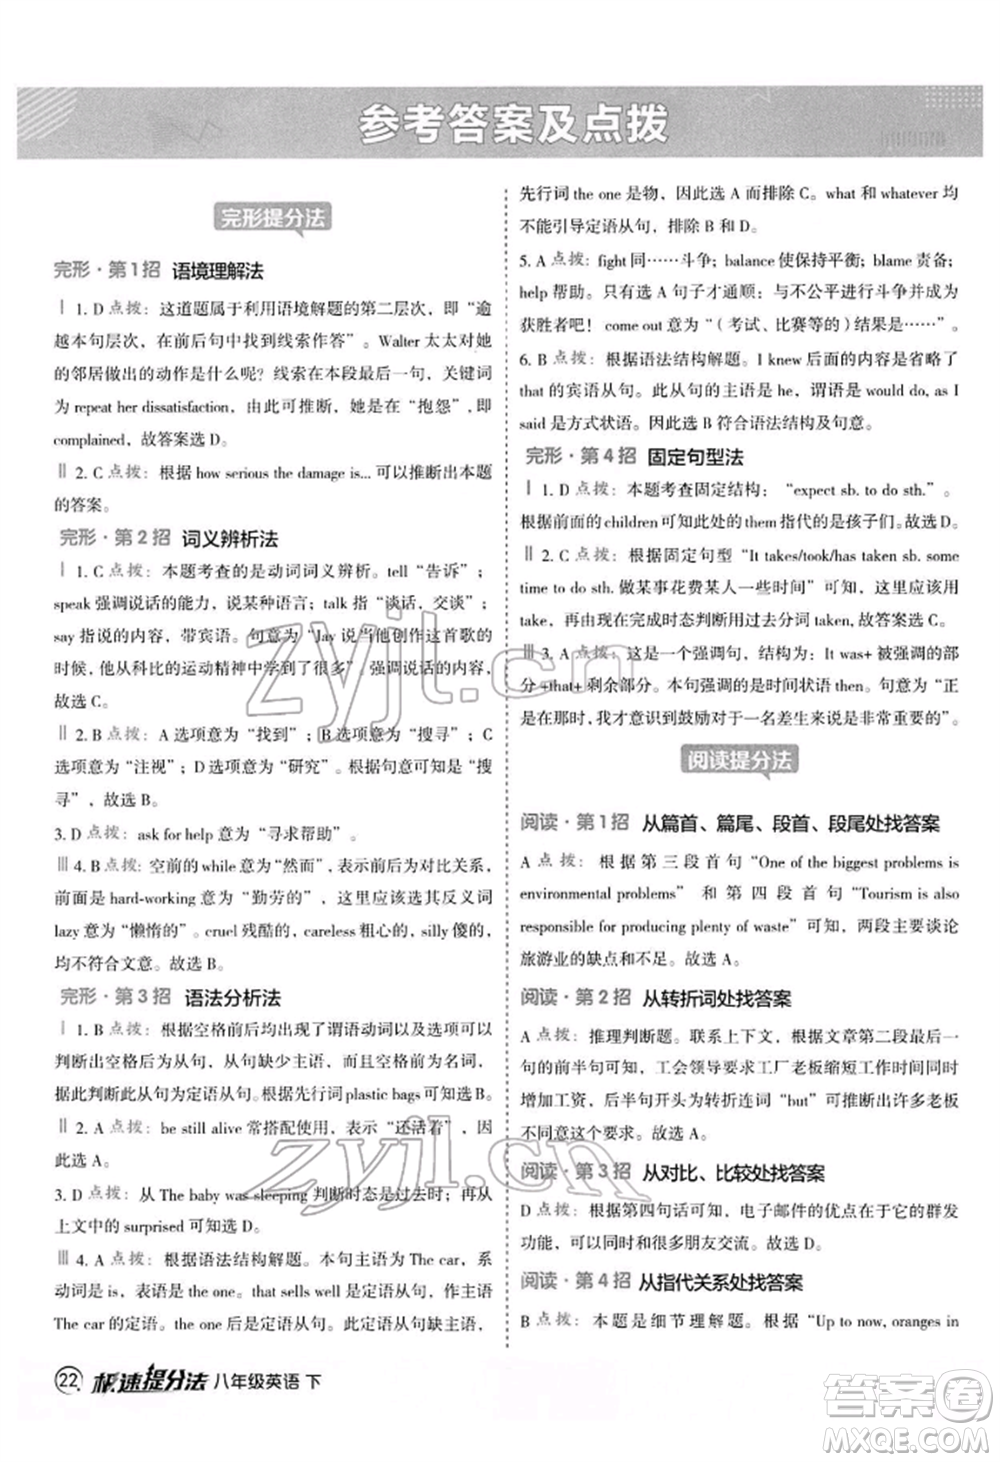 参考答案及点拨
完形提分法
完形·第1招 语境理解法
Ⅰ 1. D 点拨：这道题属于利用语境解题的第二层次，即“逾
越本句层次，在前后句中找到线索作答”。Walter 太太对她
的邻居做出的动作是什么呢？线索在本段最后一句，关键词
为 repeat her dissatisfaction，由此可推断，她是在“抱怨”,即
complained，故答案选 D。
Ⅱ 2. C 点拨：根据 how serious the damage is... 可以推断出本题
的答案。
完形·第2招 词义辨析法
Ⅰ 1. C 点拨：本题考查的是动词词义辨析。tell “告诉”；
speak 强调说话的能力，说某种语言；talk 指“谈话，交谈”；
say 指说的内容，带宾语。句意为“Jay 说当他创作这首歌的
时候，他从科比的运动精神中学到了很多”。强调说话的内容，
故选 C。
Ⅱ 2. B 点拨：A 选项意为“找到”；B 选项意为“搜寻”；C
选项意为“注视”；D 选项意为“研究”。根据句意可知是“搜
寻”，故选 B。
3. D 点拨：ask for help 意为“寻求帮助”。
Ⅲ 4. B 点拨：空前的 while 意为“然而”，表示前后是对比关
系。前面的 hard-working 意为“勤劳的”，这里应该选其反义词
lazy 意为“懒惰的”。cruel 残酷的，careless 粗心的，silly 傻的，
均不符合文意。故选 B。
完形·第3招 语法分析法
Ⅰ 1. B 点拨：根据空格前后均出现了谓语动词以及连词可以
判断出空格后为从句，从句缺少主语，而且空格前为名词，
据此判断此从句为定语从句。根据先行词 plastic bags 可知选 B。
Ⅱ 2. A 点拨：be still alive 常搭配使用，表示“还活着”，因
此选 A。
3. D 点拨：从 The baby was sleeping 判断时态是过去时；再从
上文中的 surprised 可知选 D。
Ⅲ 4. A 点拨：根据语法结构解题。本句主语为 The car，系
动词是 is，表语是 white。that sells well 是定语从句，作主语
The car 的定语。one 后是定语从句。此定语从句缺主语，
先行词 the one 是物，因此选 A 而排除 C。what 和 whatever 均
不能引导定语从句，排除 B、D。
5. A 点拨：fight 同……斗争；balance 使保持平衡；blame 责备；
help 帮助。只有选 A 句子才通顺：与不公平进行斗争并成为
获胜者吧！come out 意为“（考试、比赛等的）结果是……”。
6. B 点拨：根据语法结构解题。I knew 后面的内容是省略了
that 的宾语从句。此从句的主语是 he，谓语是 would do, as I
said 是方式状语。选 B 符合语法结构及句意。
完形·第4招 固定句型法
Ⅰ 1. D 点拨：本题考查固定结构：“expect sb. to do sth.”。
根据前面的 children 可知此处的 them 指代的是孩子们。故选 D。
Ⅱ 2. C 点拨：根据固定句型“It takes/took/has taken sb. some
time to do sth. 做某事花费某人一些时间”可知，这里应该用
take，再由现在完成时态判断用过去分词 taken, 故答案选 C。
Ⅲ 3. A 点拨：这是一个强调句，结构为：It was+ 被强调部
分 +that+ 剩余部分。本句强调的是时间状语 then。句意为“正
是在那时，我才意识到鼓励对于一名差生来说是非常重要的”。
阅读提分法
阅读·第1招 从篇首、篇尾、段首、段尾处找答案
A 点拨：根据第三段首句“One of the biggest problems is
environmental problems” 和第四段首句“Tourism is also
responsible for producing plenty of waste”可知，两段主要谈论
旅游业的缺点和不足。故选 A。
阅读·第2招 从转折词处找答案
A 点拨：推理判断题。联系上下文，根据文章第二段最后一句
的前半句可知，工会领导要求工厂老板缩短工作时间同时
增加工资，后半句开头为转折连词“but”可推断出许多老板
不同意这个要求。故选 A。
阅读·第3招 从对比、比较处找答案
D 点拨：根据第四句话可知，电子邮件的优点在于它的群发
功能，可以和很多朋友交流。故选 D。
阅读·第4招 从指代关系处找答案
B 点拨：本题是细节理解题。根据“Up to now, oranges in
22 极速提分法 八年级英语 下
zyjl.cn
zyjl.cn
答案圈
MXQE.COM